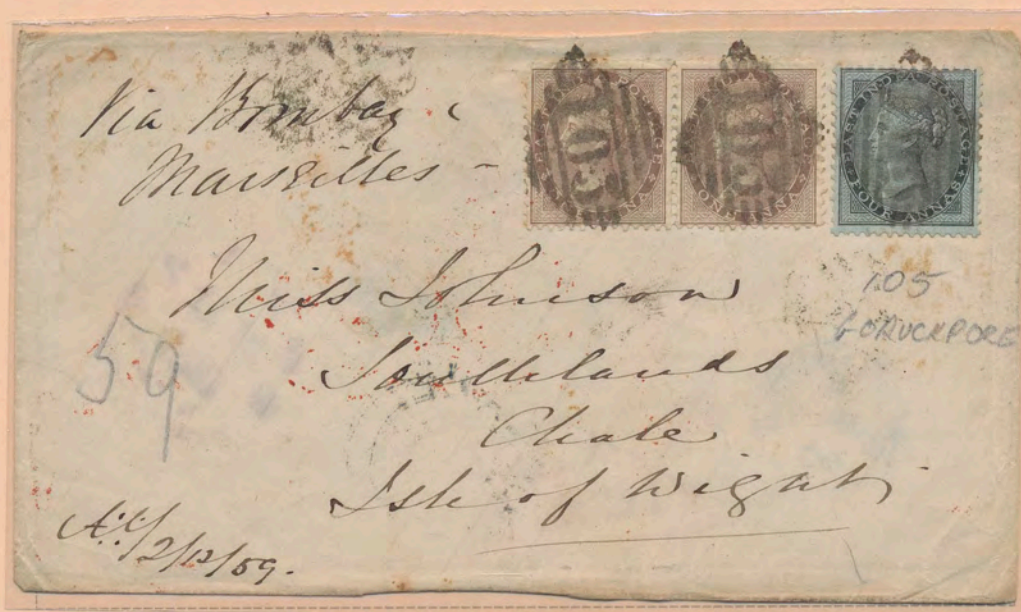 Via Bombay &
Marseilles -
EAST INDIA POSTAGE
ONE ANNA
105
EAST INDIA POSTAGE
ONE ANNA
105
EAST INDIA POSTAGE
FOUR ANNAS
105
GORUCKPORE
Miss Johnson
Southlands
Chale
Isle of Wight
59
2/12/59.